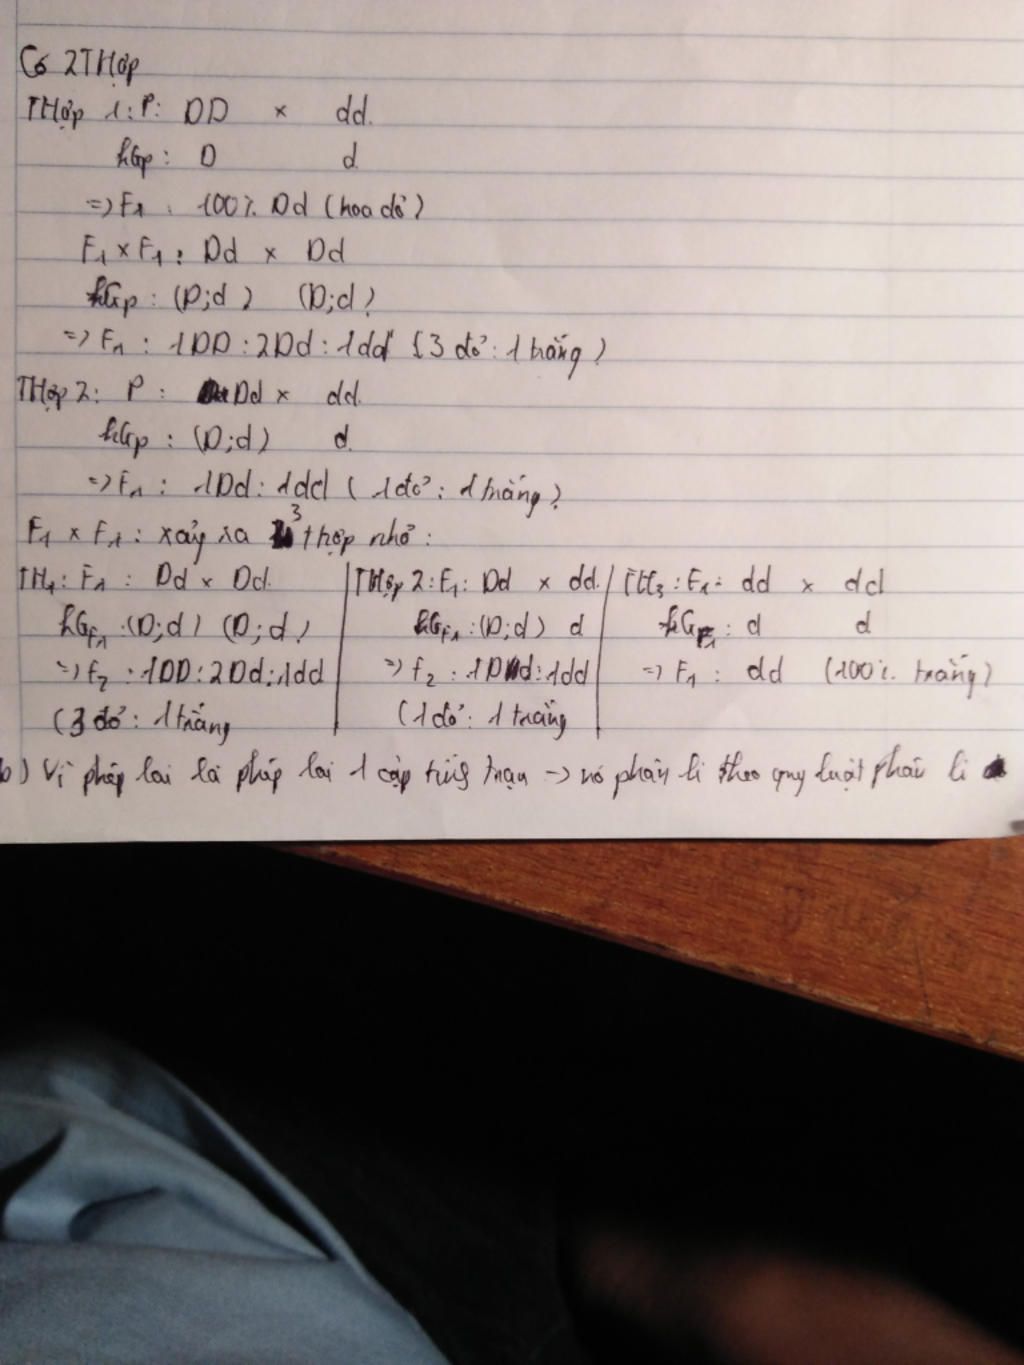 Có 2THợp
THợp 1: P: DD × dd.
hGp: D d
=> F1: 100% Dd (hoa đỏ)
F1 × F1: Dd × Dd
hGp: (D;d) (D;d)
=> F1: 1DD:2Dd:1dd (3 đỏ: 1 trắng)
THợp 2: P: Dd × dd.
hGp: (D;d) d.
=> F1: 1Dd:1dd (1đỏ: 1 trắng)
F1 × F1: xảy xa 3 thợp nhỏ:
TH1: F1: Dd × Dd.
hGF1: (D;d) (D;d)
=> F2: 1DD:2Dd:1dd
(3 đỏ: 1 trắng
THợp 2: F1: Dd × dd.
hGF1: (D;d) d
=> F2: 1Dd:1dd
(1 đỏ: 1 trắng
TH3: F1: dd × dd
hGF1: d d
=> F1: dd (100% trắng)
b) Vì phép lai là phép lai 1 cặp tính trạn -> nó phân li theo quy luật phân li